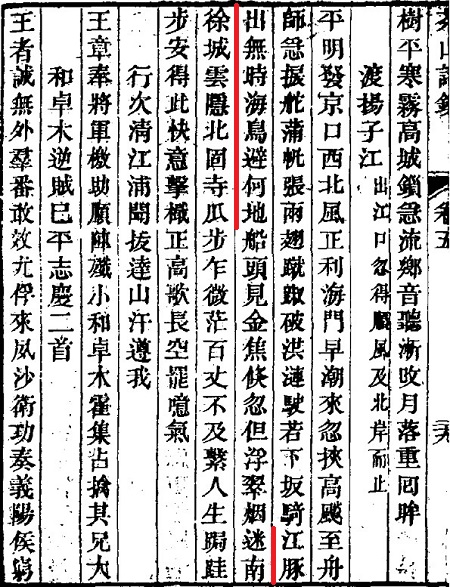 卷五
樹平寒霧高城鎖急流鄉音聽漸改月落重回眸
渡揚子江 出江口忽得颶風及北岸而止
平明發京口西北風正利海門早潮來忽挾高颶至舟
師急捩舵蒲帆張兩翅蹴破洪漣駛若下坂騎江豚
出無時海鳥避何地船頭見金焦倏忽但浮翠烟迷南
徐城雲隱北固寺瓜步乍微茫百丈不及繫人生跼跬
步安得此快意擊檝正高歌長空罷噫氣
行次清江浦聞拔達山汗遵我
王章奉將軍檄助順陣殲小和卓木霍集占擒其兄大
和卓木逆賊已平志慶二首
王者誠無外羣番敢效尤俘來夙沙衛功奏義陽侯窮